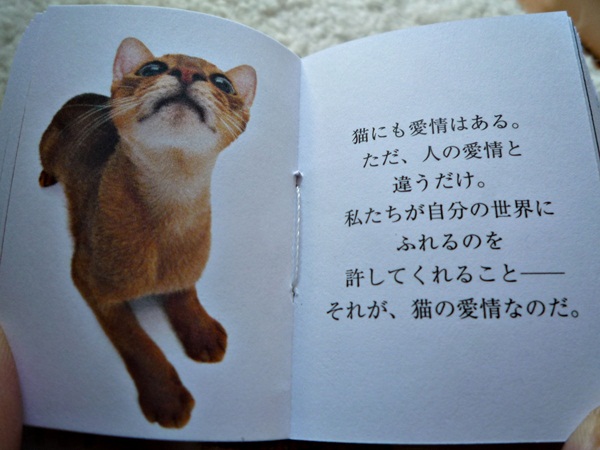 猫にも愛情はある。
ただ、人の愛情と
違うだけ。
私たちが自分の世界に
ふれるのを
許してくれること――
それが、猫の愛情なのだ。